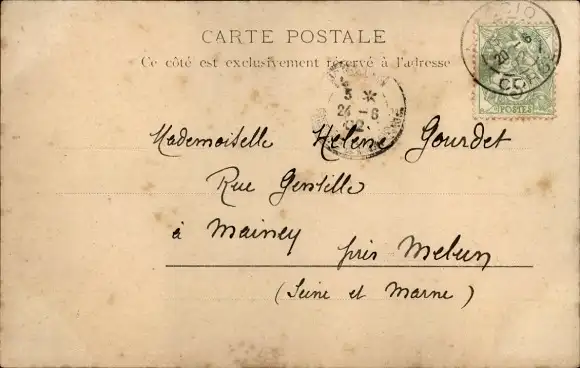 CARTE POSTALE
Ce côté est exclusivement réservé à l'adresse
CORSE
POSTES
5 *
24 - 6
02
Mademoiselle Hélène Gourdet
Rue Gentille
à Maincy près Melun
(Seine et Marne)